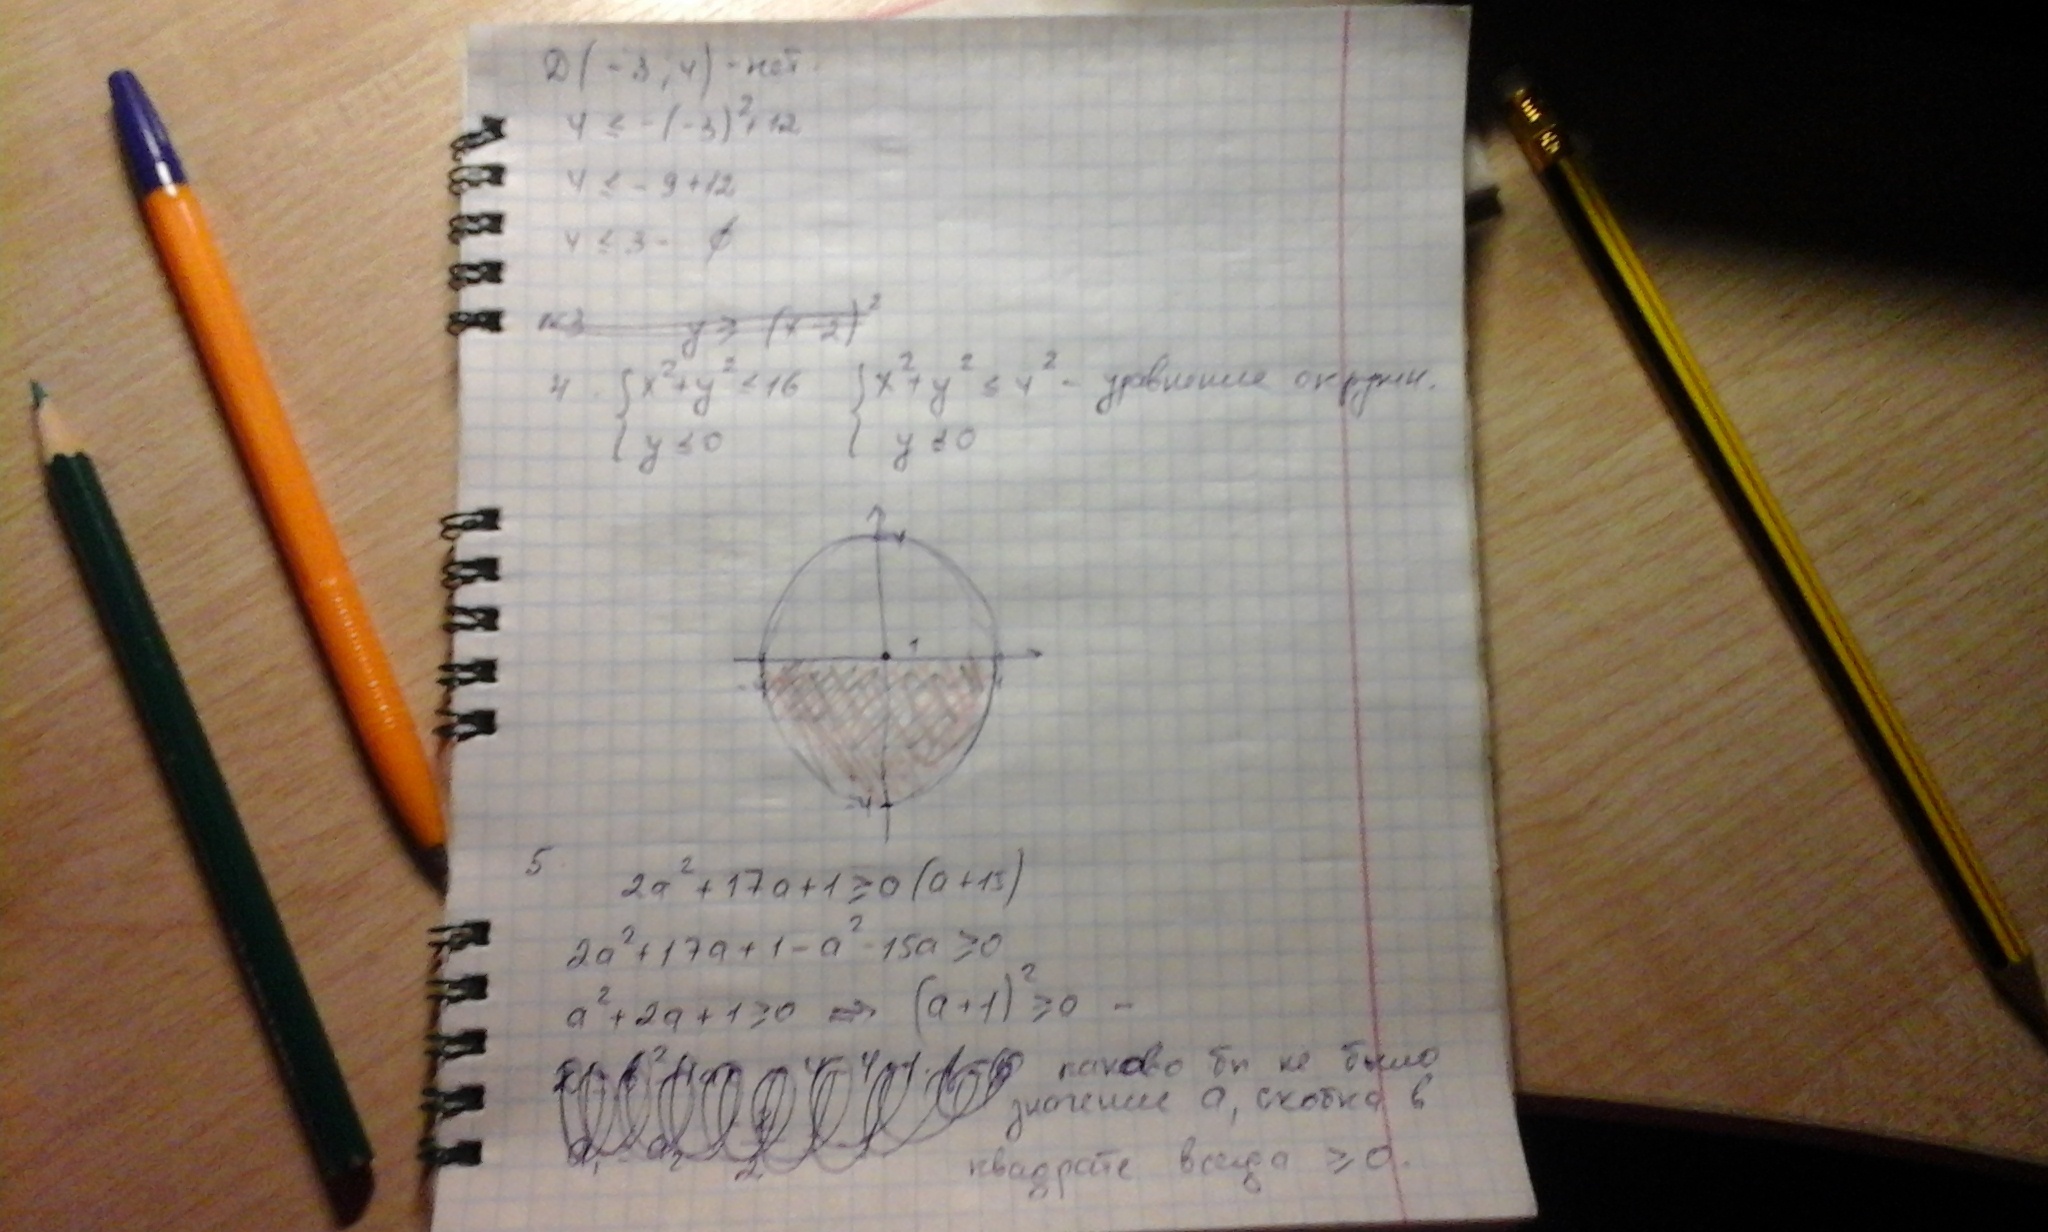 D(-3; 4) - нет.
4 ≤ -(-3)²+12
4 ≤ -9+12
4 ≤ 3 - ∅
y ≥ (x-2)²
4. { x²+y² ≤ 16 { x²+y² ≤ 4² - уравнение окружн.
y ≤ 0 y ≤ 0
4
1
-4
5.
2a²+17a+1 ≥ a(a+15)
2a²+17a+1-a²-15a ≥ 0
a²+2a+1 ≥ 0 ⇒ (a+1)² ≥ 0 -
каково бы не было
значение a, скобка в
квадрате всегда ≥ 0.